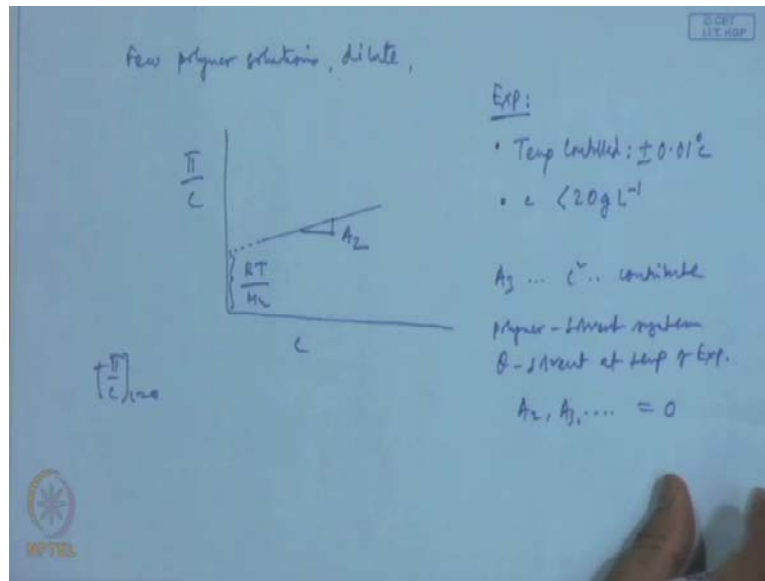 Few polymer solutions, dilute,
π/c
A2
RT/Mn
c
[π/c]c=0
Exp:
• Temp controlled: ± 0.01°c
• c < 20 g L⁻¹
A3 ... c² .. contribute
polymer-solvent system
θ-solvent at temp of Exp.
A2, A3, .... = 0
© CET
I.I.T. KGP
NPTEL